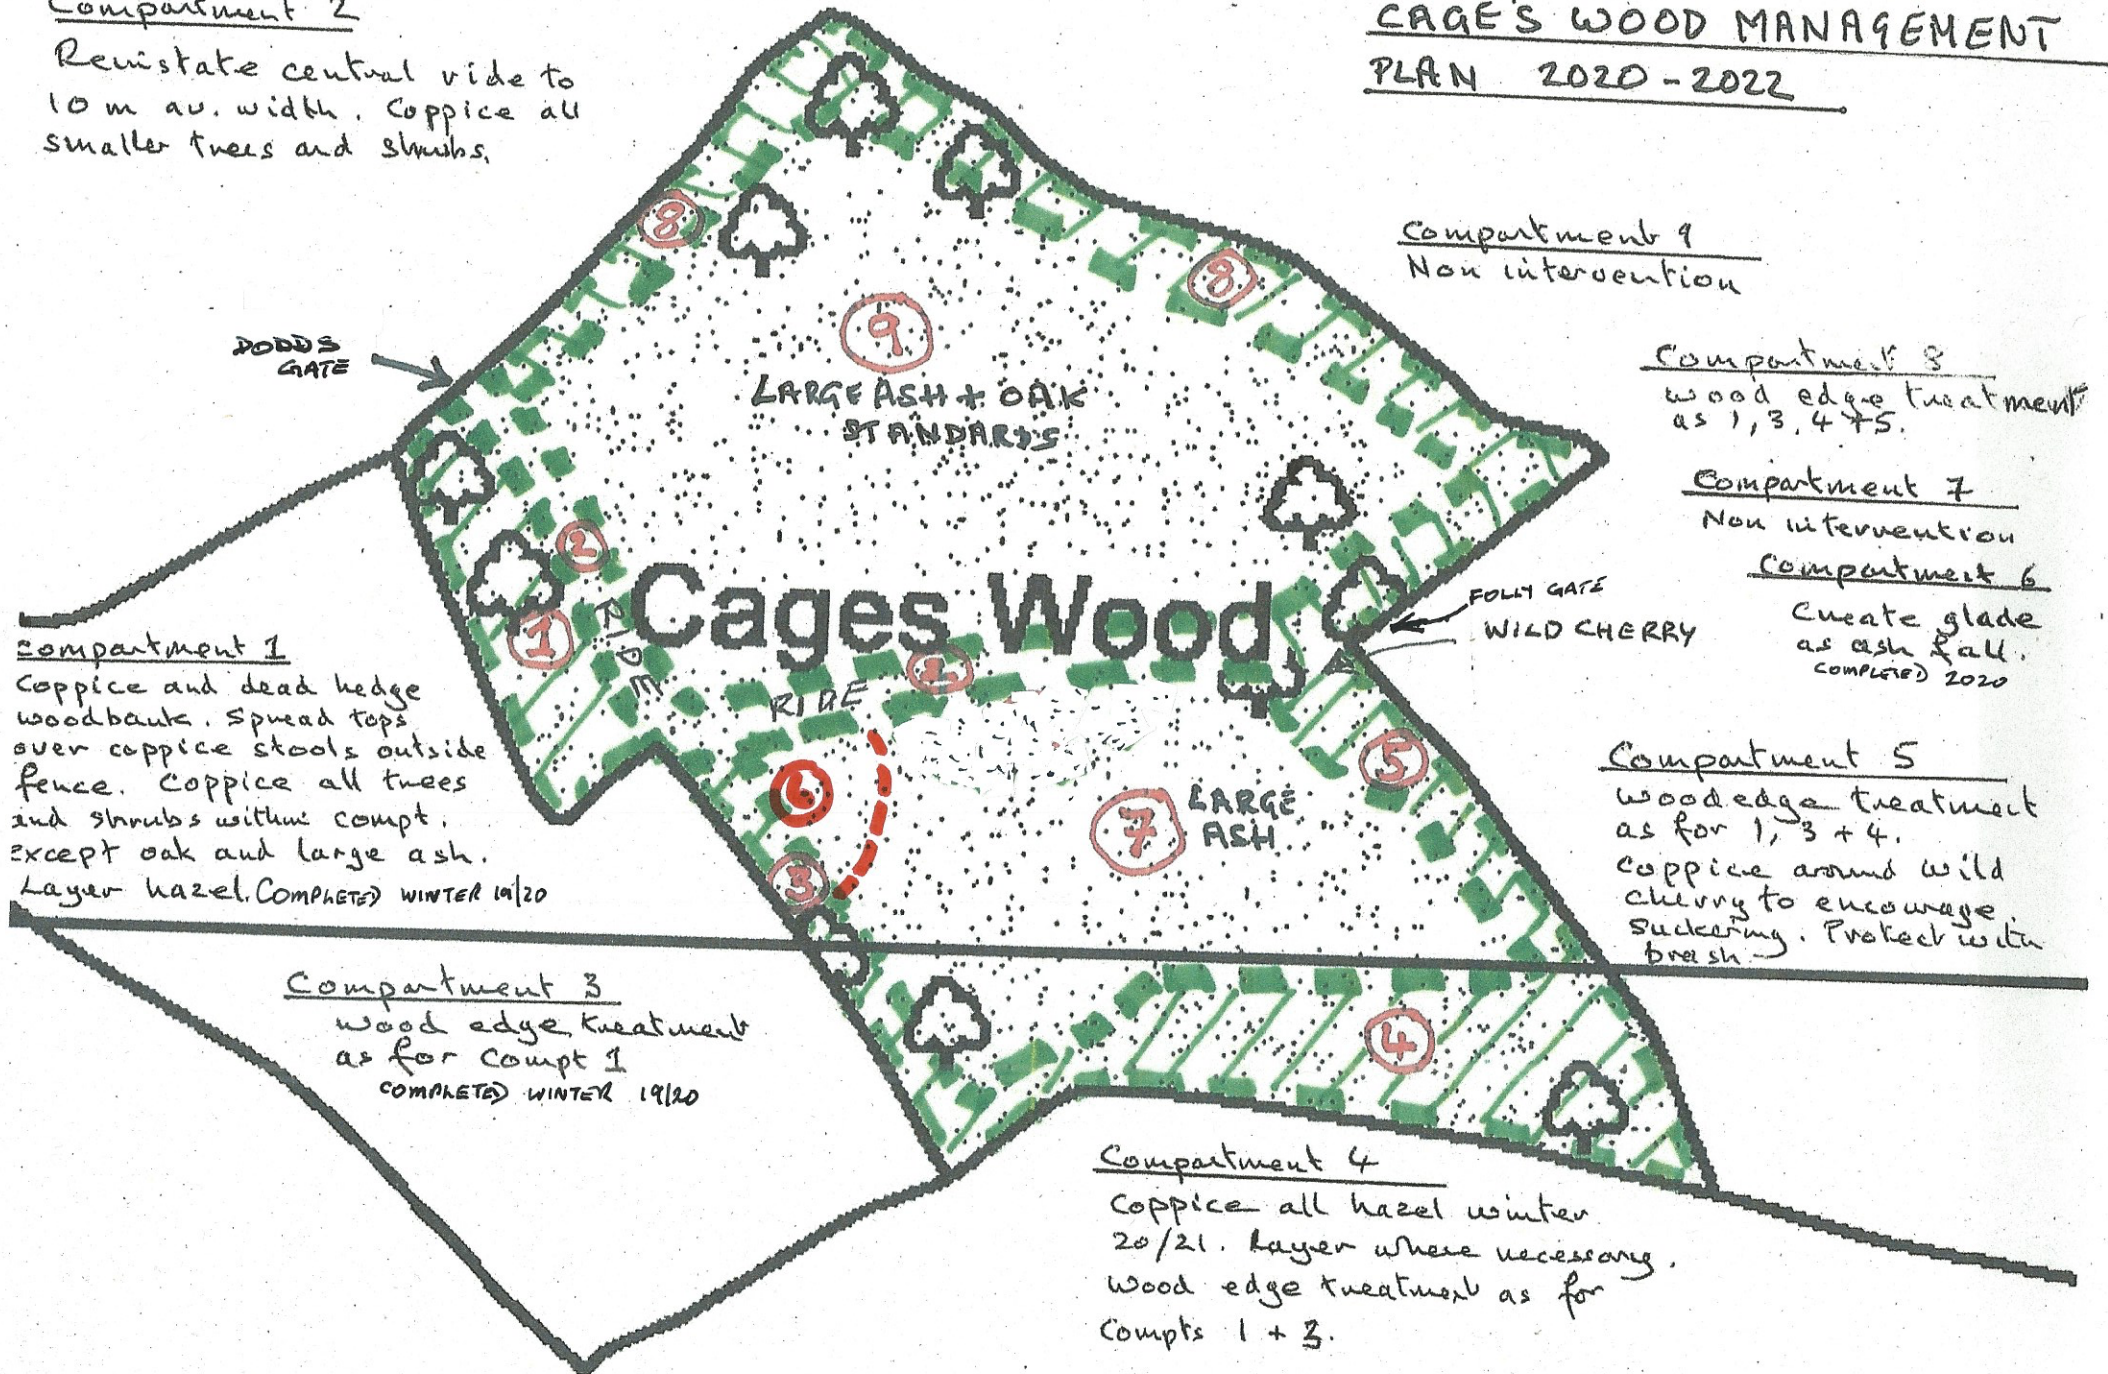 Compartment 2
Reinstate central ride to
10 m av. width. Coppice all
smaller trees and shrubs.
CAGE'S WOOD MANAGEMENT
PLAN 2020-2022
Compartment 9
Non intervention
Compartment 8
wood edge treatment
as 1, 3, 4 + 5.
Compartment 7
Non intervention
Compartment 6
Create glade
as ash fall.
COMPLETED 2020
Compartment 5
Wood edge treatment
as for 1, 3 + 4.
Coppice around wild
cherry to encourage
suckering. Protect with
brash
DODDS
GATE
8
8
9
LARGE ASH + OAK
STANDARDS
2
1
RIDE
Cages Wood
FOLLY GATE
WILD CHERRY
2
RIDE
6
3
7
LARGE
ASH
5
4
Compartment 1
Coppice and dead hedge
woodbank. Spread tops
over coppice stools outside
fence. Coppice all trees
and shrubs within compt.
except oak and large ash.
Layer hazel. COMPLETED WINTER 19/20
Compartment 3
wood edge treatment
as for Compt 1
COMPLETED WINTER 19/20
Compartment 4
Coppice all hazel winter
20/21. Layer where necessary.
Wood edge treatment as for
Compts 1 + 3.